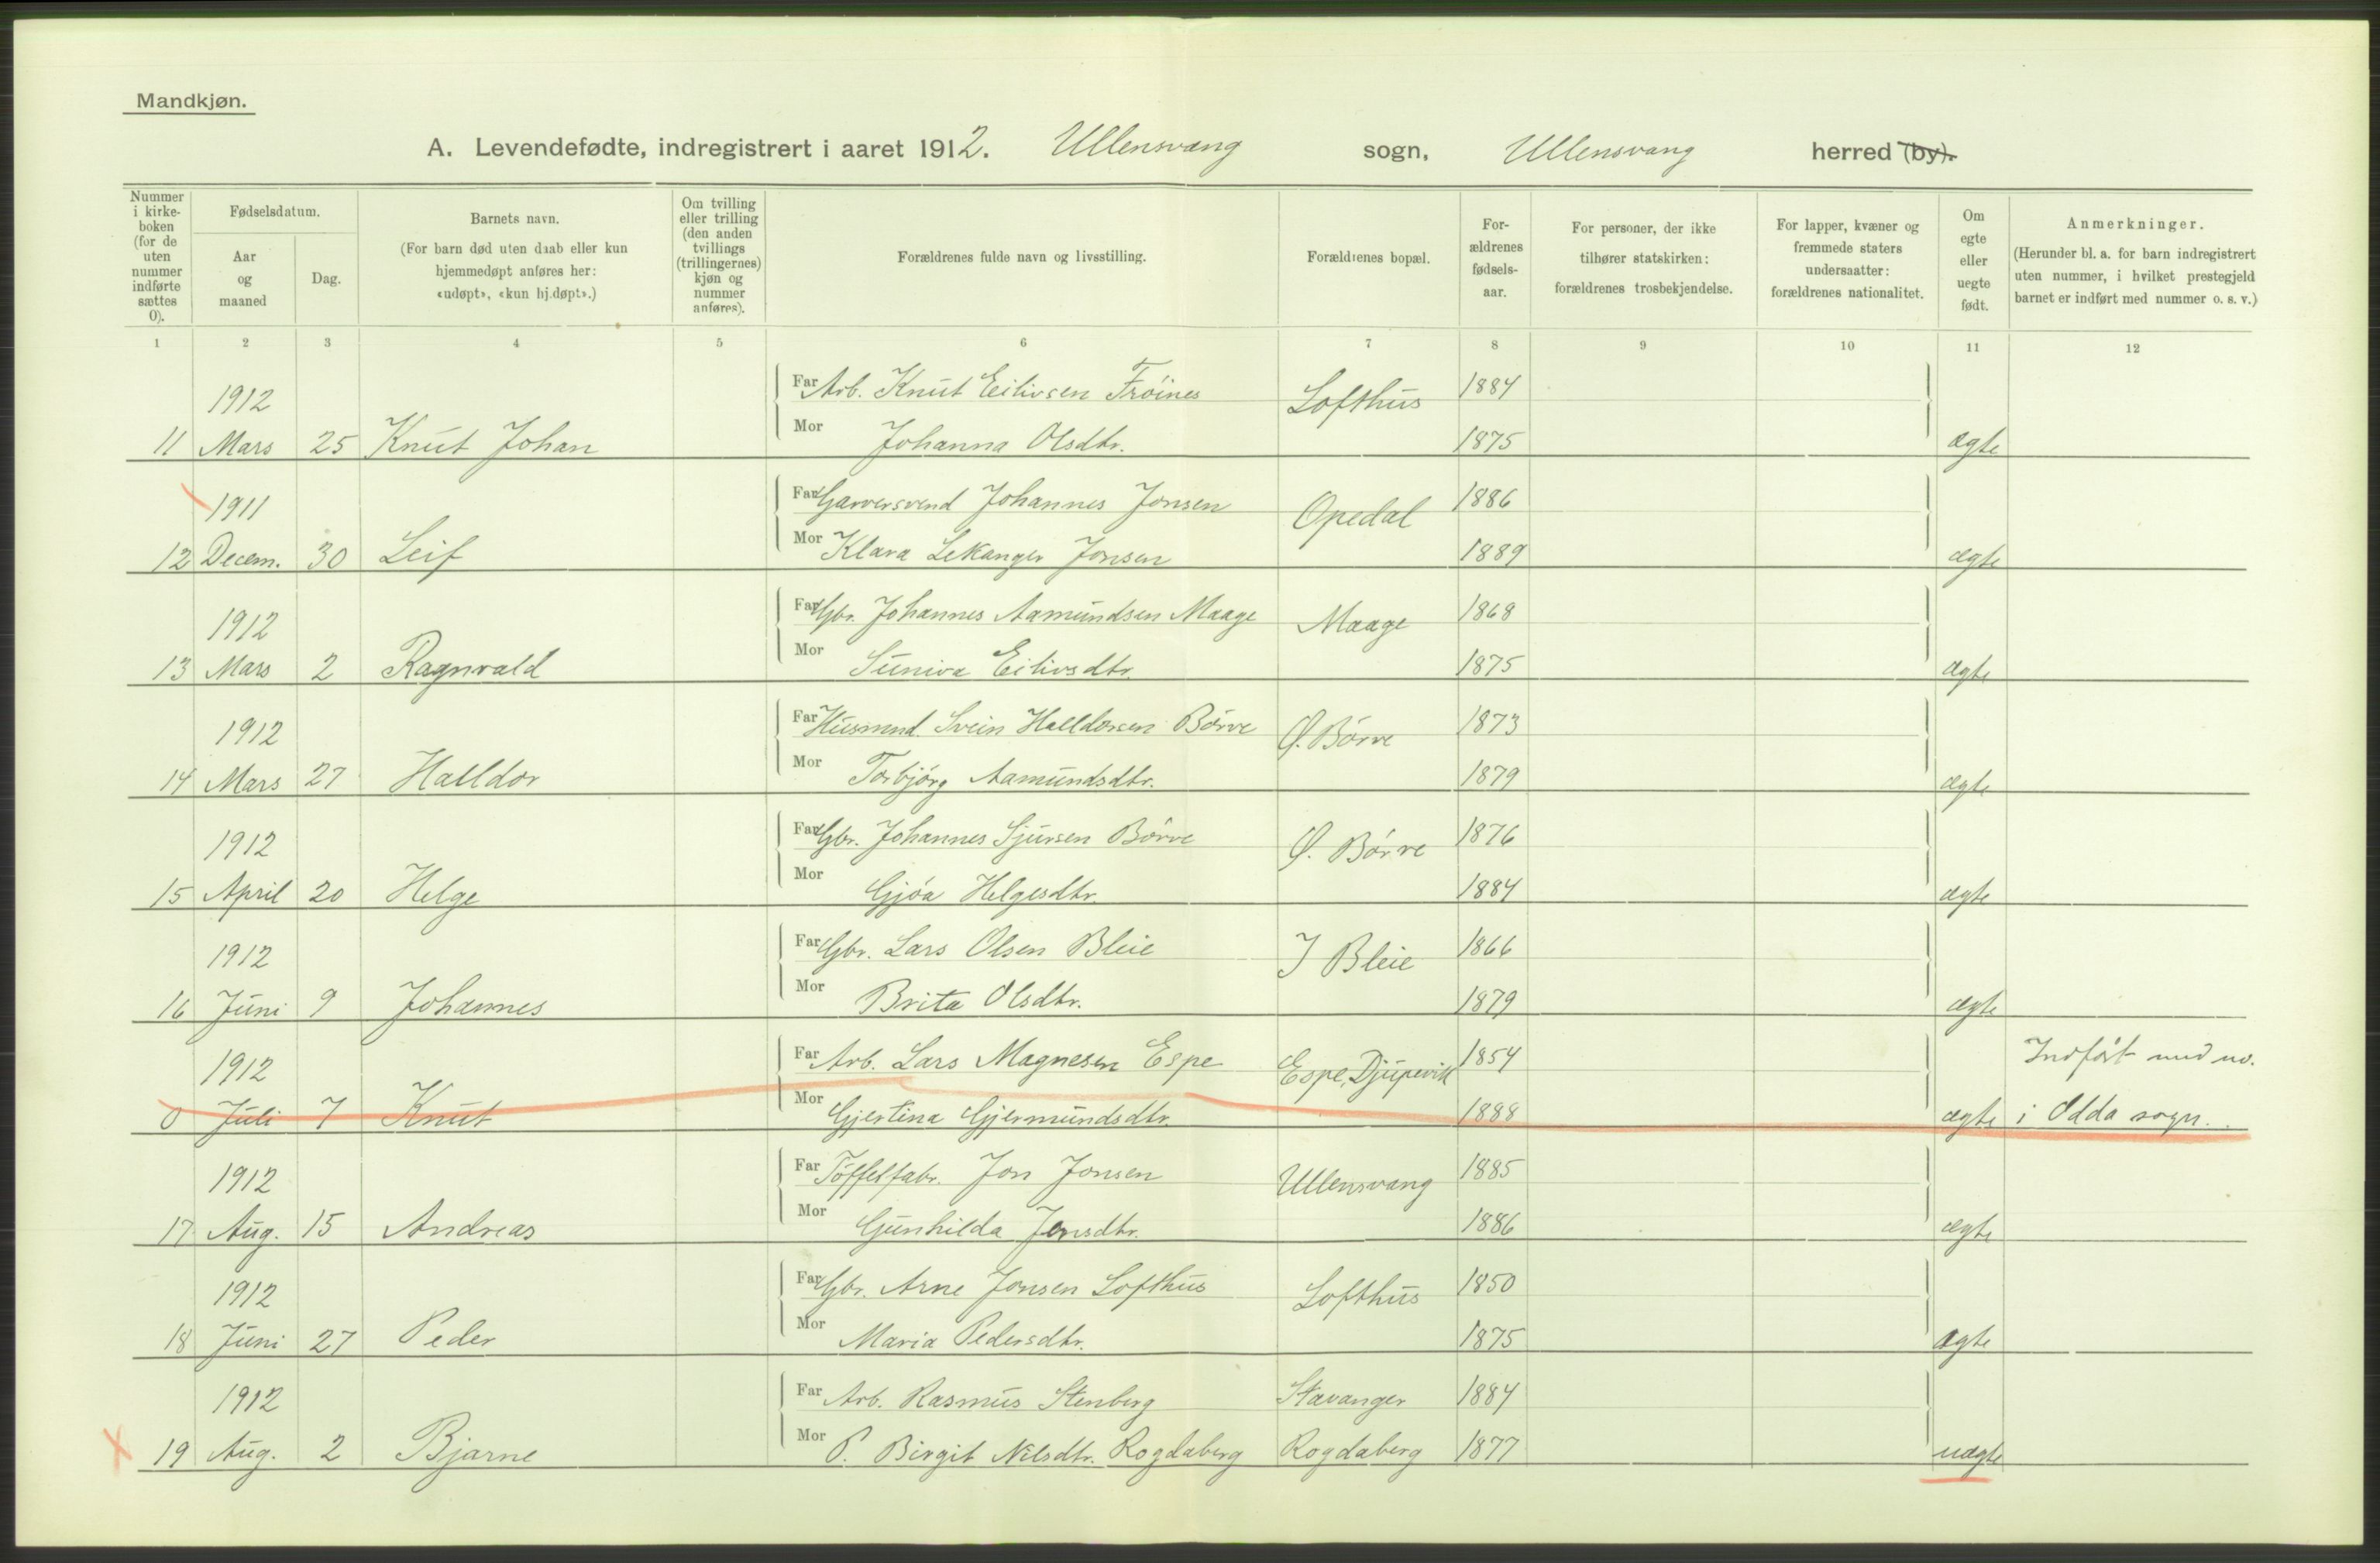 Mandkjøn.
A. Levendefødte, indregistrert i aaret 1912. Ullensvang sogn, Ullensvang herred (by).
Nummer i kirke-boken (for de uten nummer indførte sættes 0).
Fødselsdatum.
Aar og maaned
Dag.
Barnets navn.
(For barn død uten daab eller kun hjemmedøpt anføres her: «udøpt», «kun hj.døpt».)
Om tvilling eller trilling (den anden tvillings (trillingernes) kjøn og nummer anføres).
Forældrenes fulde navn og livsstilling.
Forældrenes bopæl.
For-ældrenes fødsels-aar.
For personer, der ikke tilhører statskirken: forældrenes trosbekjendelse.
For lapper, kvæner og fremmede staters undersaatter: forældrenes nationalitet.
Om egte eller uegte født.
Anmerkninger.
(Herunder bl. a. for barn indregistrert uten nummer, i hvilket prestegjeld barnet er indført med nummer o. s. v.)
1 2 3 4 5 6 7 8 9 10 11 12
1912 Far Arb. Knut Eilivsen Frøines Lofthus 1884
11 Mars 25 Knut Johan Mor Johanna Olsdtr. 1875 ægte
1911 Far Garversvend Johannes Jonsen Opedal 1886
12 Decem. 30 Leif Mor Klara Lekanger Jonsen 1889 ægte
1912 Far Gbr. Johannes Aamundsen Maage Maage 1868
13 Mars 2 Ragnvald Mor Suniva Eilivsdtr. 1875 ægte
1912 Far Husmnd. Svein Halldorsen Børve Ø. Børve 1873
14 Mars 27 Halldor Mor Torbjørg Aamundsdtr. 1879 ægte
1912 Far Gbr. Johannes Sjursen Børve Ø. Børve 1876
15 April 20 Helge Mor Gjøa Helgesdtr. 1884 ægte
1912 Far Gbr. Lars Olsen Bleie I Bleie 1866
16 Juni 9 Johannes Mor Brita Olsdtr. 1879 ægte
1912 Far Arb. Lars Magnesen Espe Espe, Djupevik 1854 Indført med no.
0 Juli 7 Knut Mor Gjertina Gjermundsdtr. 1888 ægte i Odda sogn.
1912 Far Tøffelfabr. Jon Jonsen Ullensvang 1885
17 Aug. 15 Andreas Mor Gunhilda Jensdtr. 1886 ægte
1912 Far Gbr. Arne Jonsen Lofthus Lofthus 1850
18 Juni 27 Peder Mor Maria Pedersdtr. 1875 ægte
1912 Far Arb. Rasmus Stenberg Stavanger 1884
19 Aug. 2 Bjarne Mor P. Birgit Nilsdtr. Rogdaberg Rogdaberg 1877 uægte